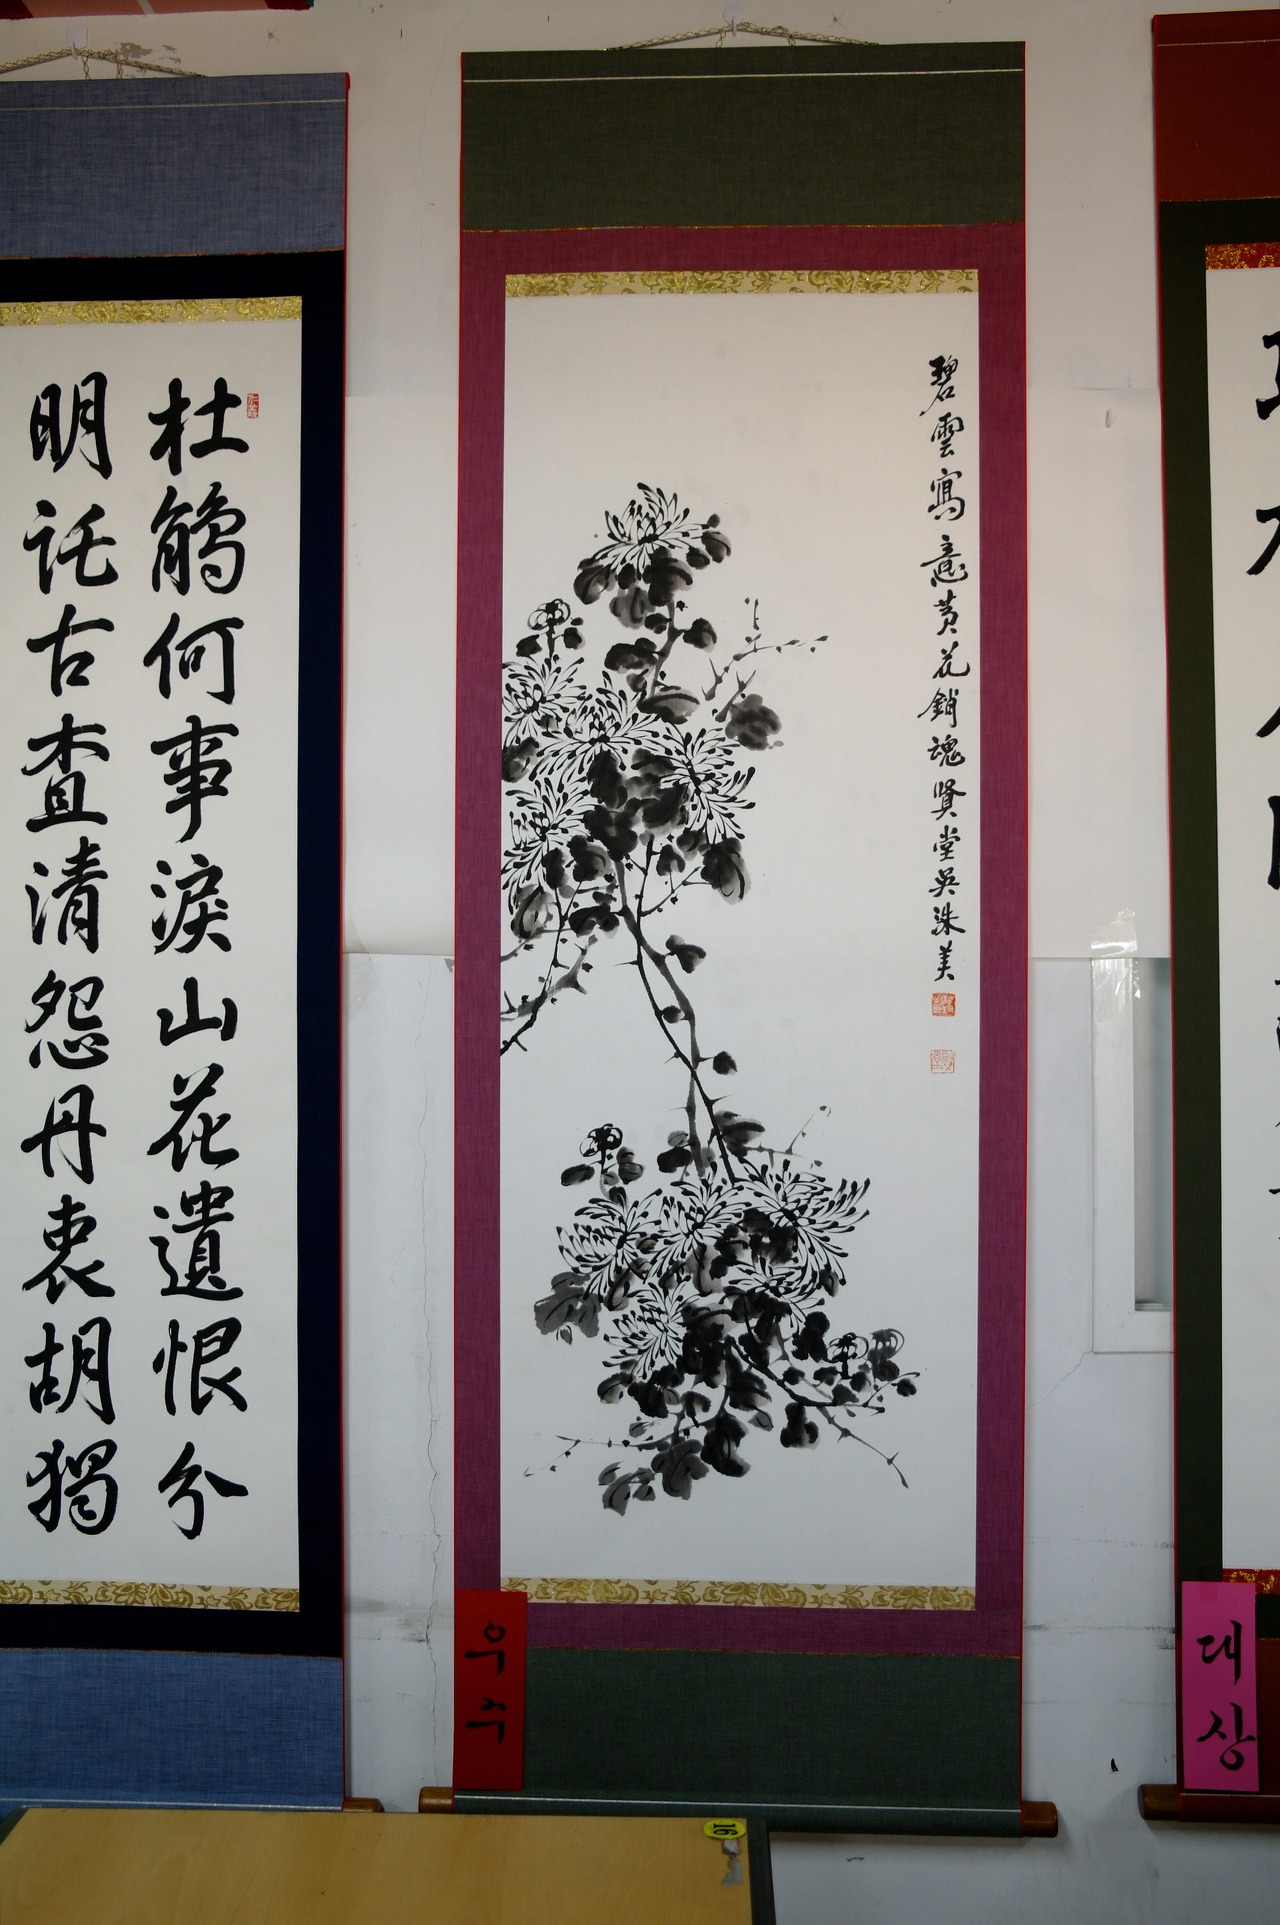 杜鵑何事淚山花遺恨分
明託古査清怨丹衷胡獨
碧雲寫意黃花銷魂賢堂吳洙美
우수
대상
16